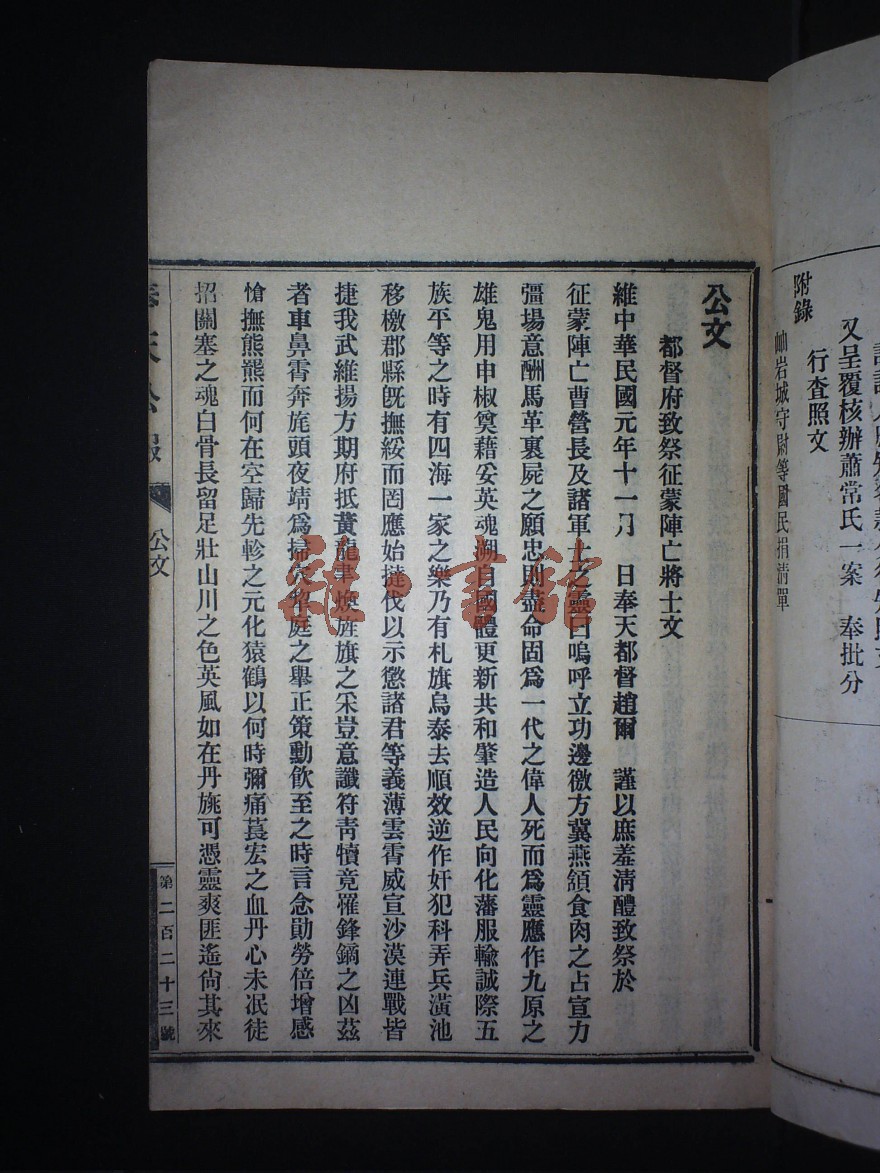 公文
都督府致祭征蒙陣亡將士文
維中華民國元年十一月 日奉天都督趙爾 謹以庶羞清醴致祭於
征蒙陣亡曹營長及諸軍士之靈曰嗚呼立功邊徼方冀燕頷食肉之占宣力
彊場意酬馬革裹屍之願忠則盡命固爲一代之偉人死而爲靈應作九原之
雄鬼用申椒奠藉妥英魂溯自國體更新共和肇造人民向化藩服輸誠際五
族平等之時有四海一家之樂乃有札旗烏泰去順效逆作奸犯科弄兵潢池
移檄郡縣旣撫綏而罔應始撻伐以示懲諸君等義薄雲霄威宣沙漠連戰皆
捷我武維揚方期府抵黃龍聿煥旌旗之采豈意讖符靑犢竟罹鋒鏑之凶茲
者車鼻霄奔旄頭夜靖爲掃穴犂庭之舉正策勳飮至之時言念勛勞倍增感
愴撫熊羆而何在空歸先軫之元化猿鶴以何時彌痛萇宏之血丹心未泯徒
招關塞之魂白骨長留足壯山川之色英風如在丹旐可憑靈爽匪遙尙其來
奉天公報
公文
第二百二十三號
又呈覆核辦蕭常氏一案 奉批分
行查照文
附錄
岫岩城守尉等國民捐清單
龍書館